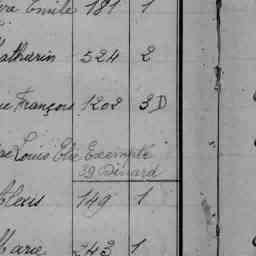 Emile 181 1
Mathurin 524 2
François 1202 3 D
Louis Elie Exempté
39 Dinard
Alexis 149 1
Marie 343 1